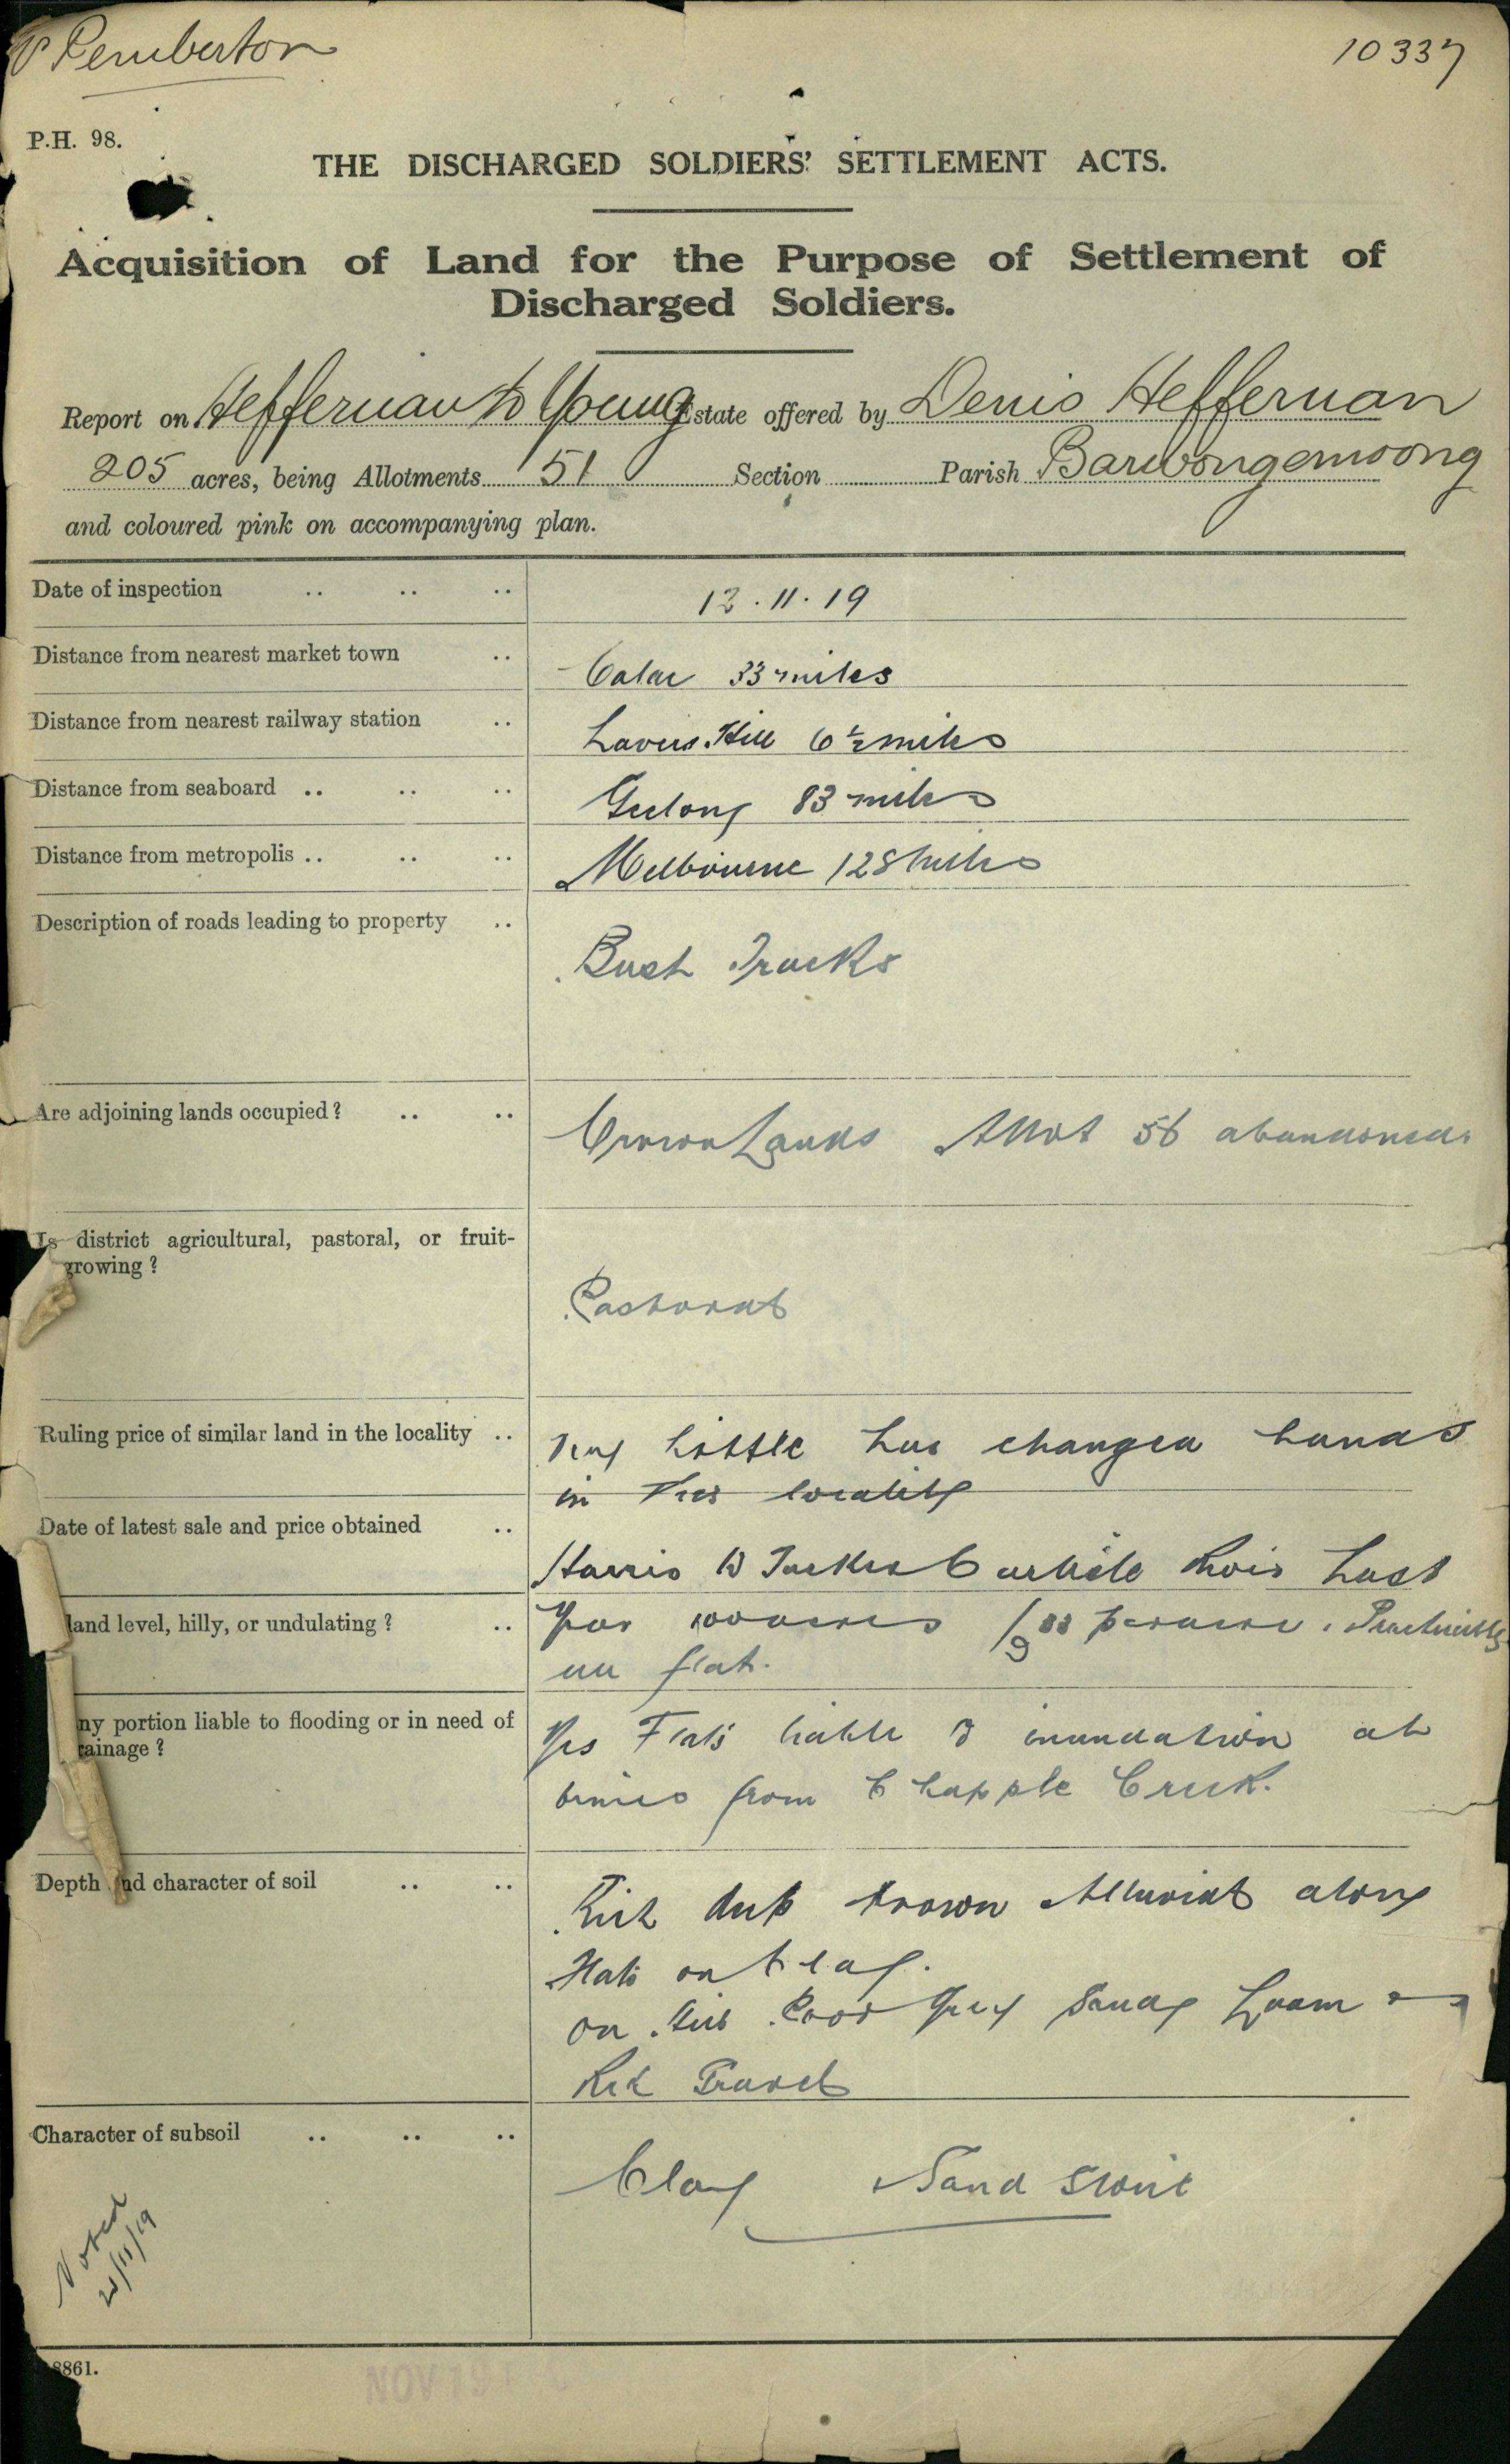 Pemberton
10337
P.H. 98.
THE DISCHARGED SOLDIERS' SETTLEMENT ACTS.
Acquisition of Land for the Purpose of Settlement of
Discharged Soldiers.
Report on Heffernan to Young Estate offered by Denis Heffernan
205 acres, being Allotments 51 Section Parish Barwongemoong
and coloured pink on accompanying plan.
Date of inspection .. .. .. 12.11.19
Distance from nearest market town .. Colac 33 miles
Distance from nearest railway station .. Lavers Hill 6½ miles
Distance from seaboard .. .. .. Geelong 83 miles
Distance from metropolis .. .. .. Melbourne 128 miles
Description of roads leading to property .. Bush Tracks
Are adjoining lands occupied? .. .. Crown Lands Allot 56 abandoned.
Is district agricultural, pastoral, or fruit-
growing?
Pastoral
Ruling price of similar land in the locality .. Very little has changed hands
in this locality
Date of latest sale and price obtained ..
Harris to Tucker Carlisle River Last
land level, hilly, or undulating? .. Year acres per acre. Practically
all flat.
ny portion liable to flooding or in need of
rainage?
Yes Flats liable to inundation at
times from Chapple Creek.
Depth and character of soil .. .. Rich deep brown Alluvial along
Flats on Clay.
on Hills Poor Grey Sandy Loam
Red Gravel
Character of subsoil .. .. .. Clay Sand Stone
Noted
21/11/19
8861.
NOV 19